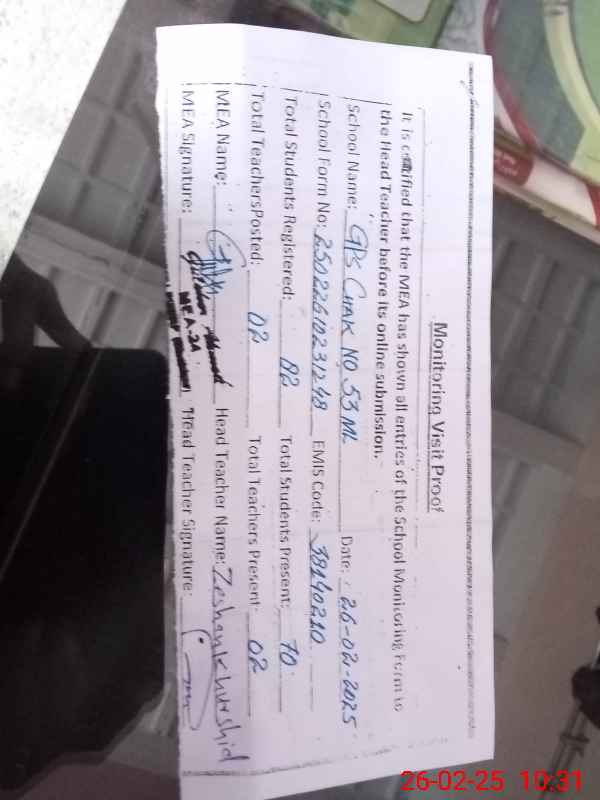 Monitoring Visit Proof
It is certified that the MEA has shown all entries of the School Monitoring Form to
the Head Teacher before its online submission.
School Name: GPS CHAK NO 53 ML Date: 26-02-2025
School Form No: 25022610231248 EMIS Code: 38140210
Total Students Registered: 82 Total Students Present: 70
Total TeachersPosted: 02 Total Teachers Present: 02
MEA Name: Head Teacher Name: Zeshan khurshid
MEA-24
MEA Signature: Head Teacher Signature:
26-02-25 10:31